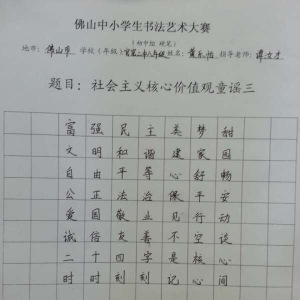 佛山中小学生书法艺术大赛
（初中组 硬笔）
地市：佛山市 学校（年级）姓名：黄乐怡 指导老师：谭汝才
题目：社会主义核心价值观童谣三
富强民主美梦甜
文明和谐建家园
自由平等心舒畅
公正法治保平安
爱国敬业见行动
诚信友善不空谈
二十四字是核心
时时刻刻记心间